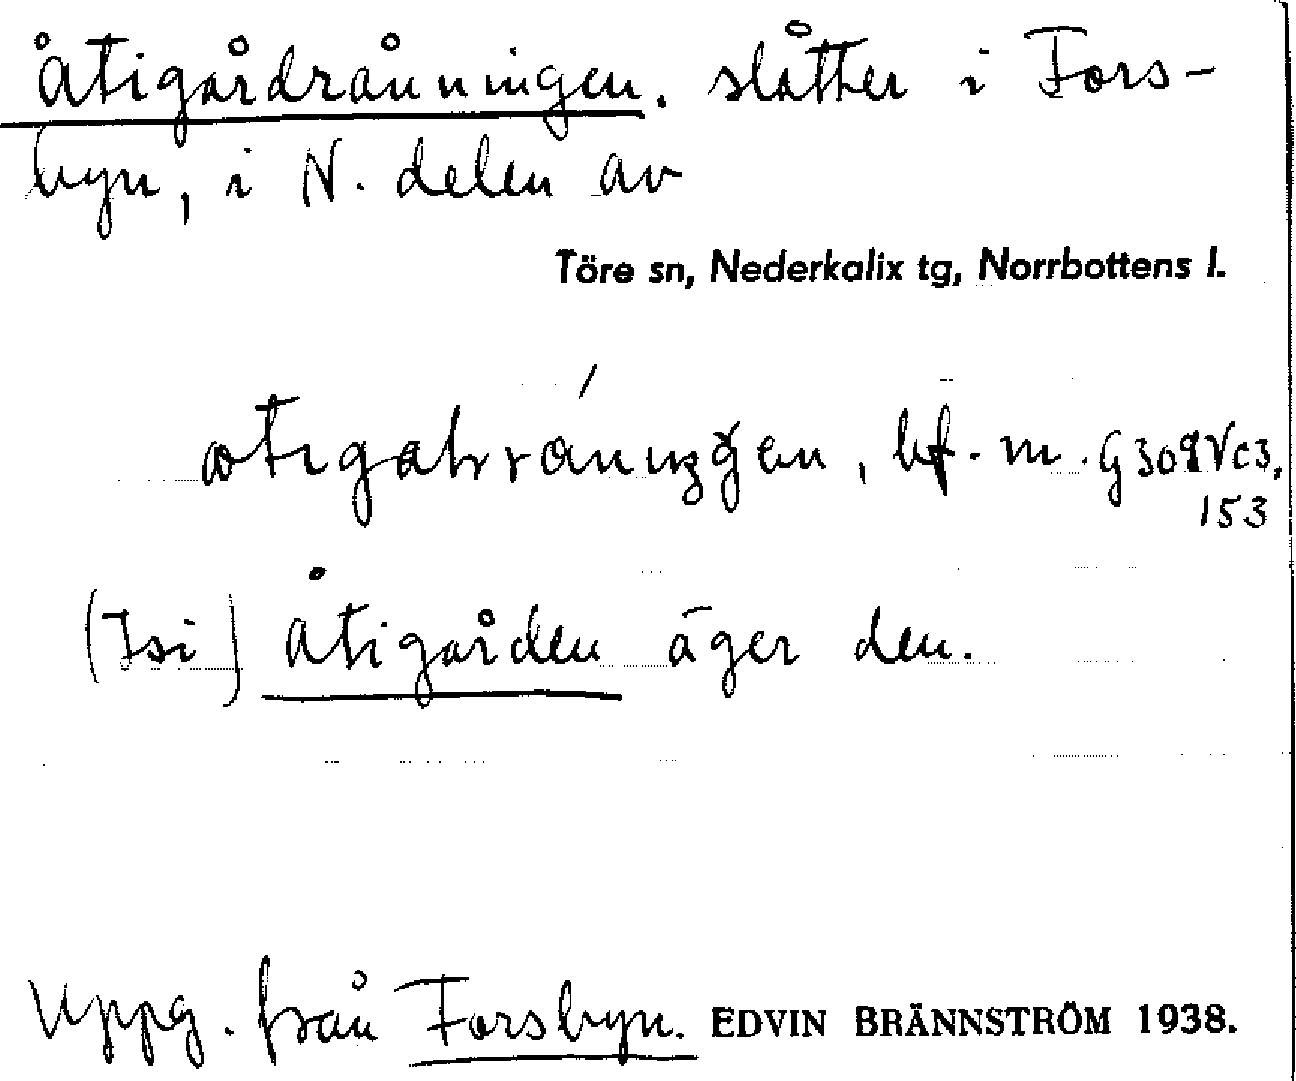 åtigårdråningen. slåtter i Fors-
byn, i N. delen av
Töre sn, Nederkalix tg, Norrbottens l.
bf. m. G309Vc3,
153
(Isi) åtigården äger den.
Uppg. från Forsbyn. EDVIN BRÄNNSTRÖM 1938.